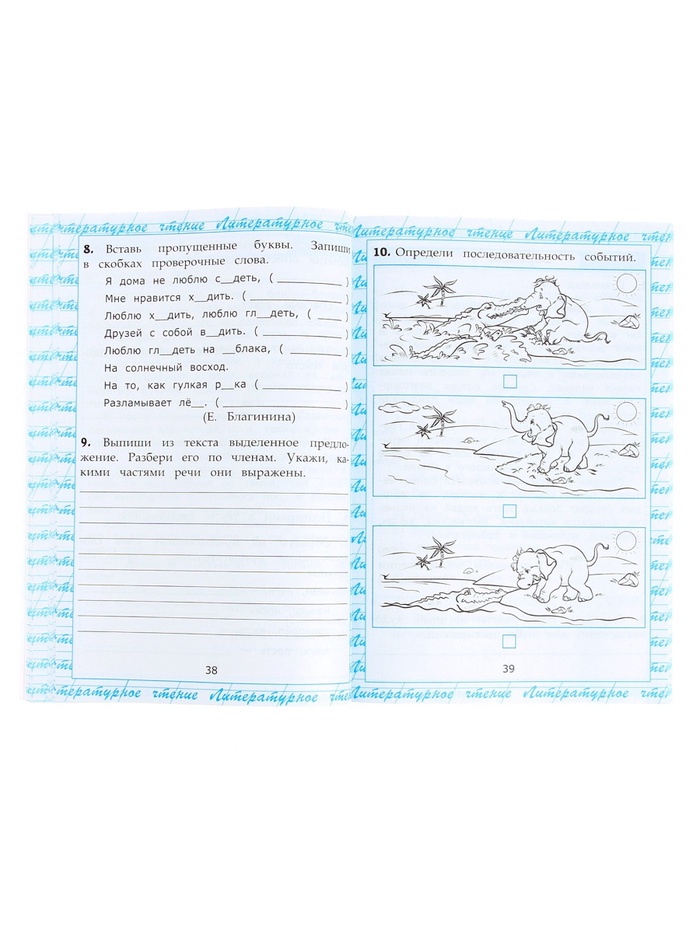 Литературное чтение Литературное чте
8. Вставь пропущенные буквы. Запиши
в скобках проверочные слова.
Я дома не люблю с__деть, ( __________ )
Мне нравится х__дить. ( __________ )
Люблю х__дить, люблю гл__деть, ( ____ )
Друзей с собой в__дить. ( __________ )
Люблю гл__деть на __блака, ( ________ )
На солнечный восход.
На то, как гулкая р__ка ( __________ )
Разламывает лё__. ( __________ )
(Е. Благинина)
9. Выпиши из текста выделенное предло-
жение. Разбери его по членам. Укажи, ка-
кими частями речи они выражены.
38
Литературное чтение Литературное
Литературное чтение Литературное чте
10. Определи последовательность событий.
39
Литературное чтение Литературное чтение